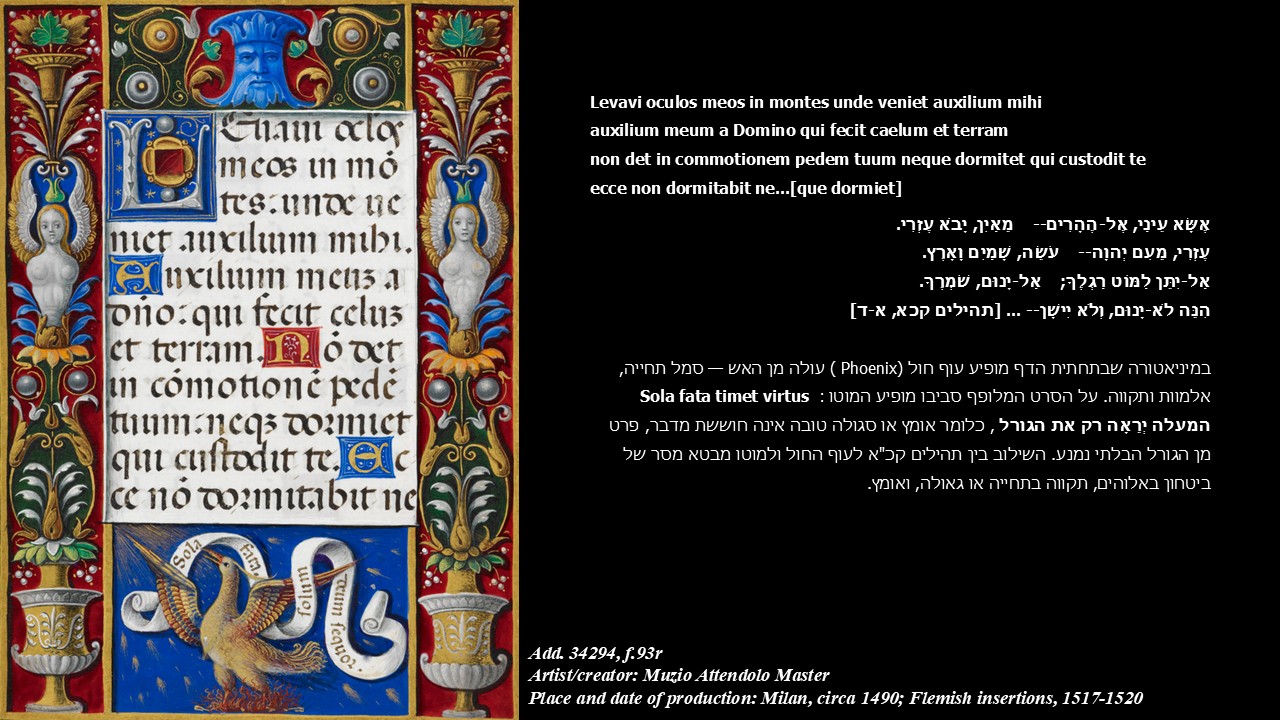 Leuaui oclos
meos in mō
tes: unde ue
niet auxilium mihi.
Auxilium meuz a
dño: qui fecit celuz
et terram. Nō det
in cōmotionē pedē
tuum: neqz dormiet
qui custodit te. Ec
ce nō dormitabit ne
Sola fata, solum deum sequor.
Levavi oculos meos in montes unde veniet auxilium mihi
auxilium meum a Domino qui fecit caelum et terram
non det in commotionem pedem tuum neque dormitet qui custodit te
ecce non dormitabit ne...[que dormiet]
אֶשָּׂא עֵינַי, אֶל-הֶהָרִים-- מֵאַיִן, יָבֹא עֶזְרִי.
עֶזְרִי, מֵעִם יְהוָה-- עֹשֵׂה, שָׁמַיִם וָאָרֶץ.
אַל-יִתֵּן לַמּוֹט רַגְלֶךָ; אַל-יָנוּם, שֹׁמְרֶךָ.
הִנֵּה לֹא-יָנוּם, וְלֹא יִישָׁן-- ... [תהילים קכא, א-ד]
במיניאטורה שבתחתית הדף מופיע עוף חול (Phoenix ) עולה מן האש — סמל תחייה,
אלמוות ותקווה. על הסרט המלופף סביבו מופיע המוטו : Sola fata timet virtus
המעלה יְרֵאָה רק את הגורל , כלומר אומץ או סגולה טובה אינה חוששת מדבר, פרט
מן הגורל הבלתי נמנע. השילוב בין תהילים קכ"א לעוף החול ולמוטו מבטא מסר של
ביטחון באלוהים, תקווה בתחייה או גאולה, ואומץ.
Add. 34294, f.93r
Artist/creator: Muzio Attendolo Master
Place and date of production: Milan, circa 1490; Flemish insertions, 1517-1520